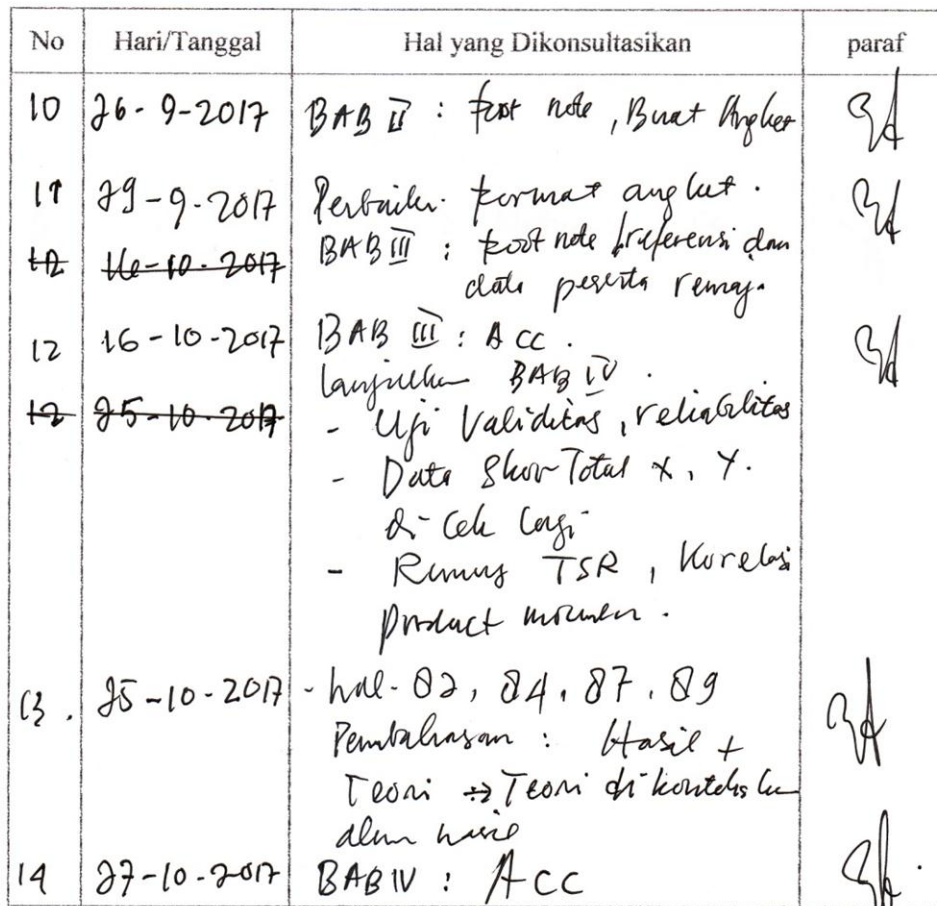 No Hari/Tanggal Hal yang Dikonsultasikan paraf
10 26-9-2017 BAB II : foot note, Buat Angket
11 29-9-2017 Perbaiki format angket.
12 16-10-2017 BAB III : foot note / referensi dan
data peserta remaj.
12 16-10-2017 BAB III : Acc.
lanjutkan BAB IV.
12 25-10-2017 - Uji Validitas, reliabilitas
- Data Skor Total X, Y.
di Cek lagi
- Rumus TSR, Korelasi
product momen.
13. 25-10-2017 - hal. 82, 84, 87, 89
Pembahasan : Hasil +
Teori → Teori di
14 27-10-2017 BAB IV : Acc